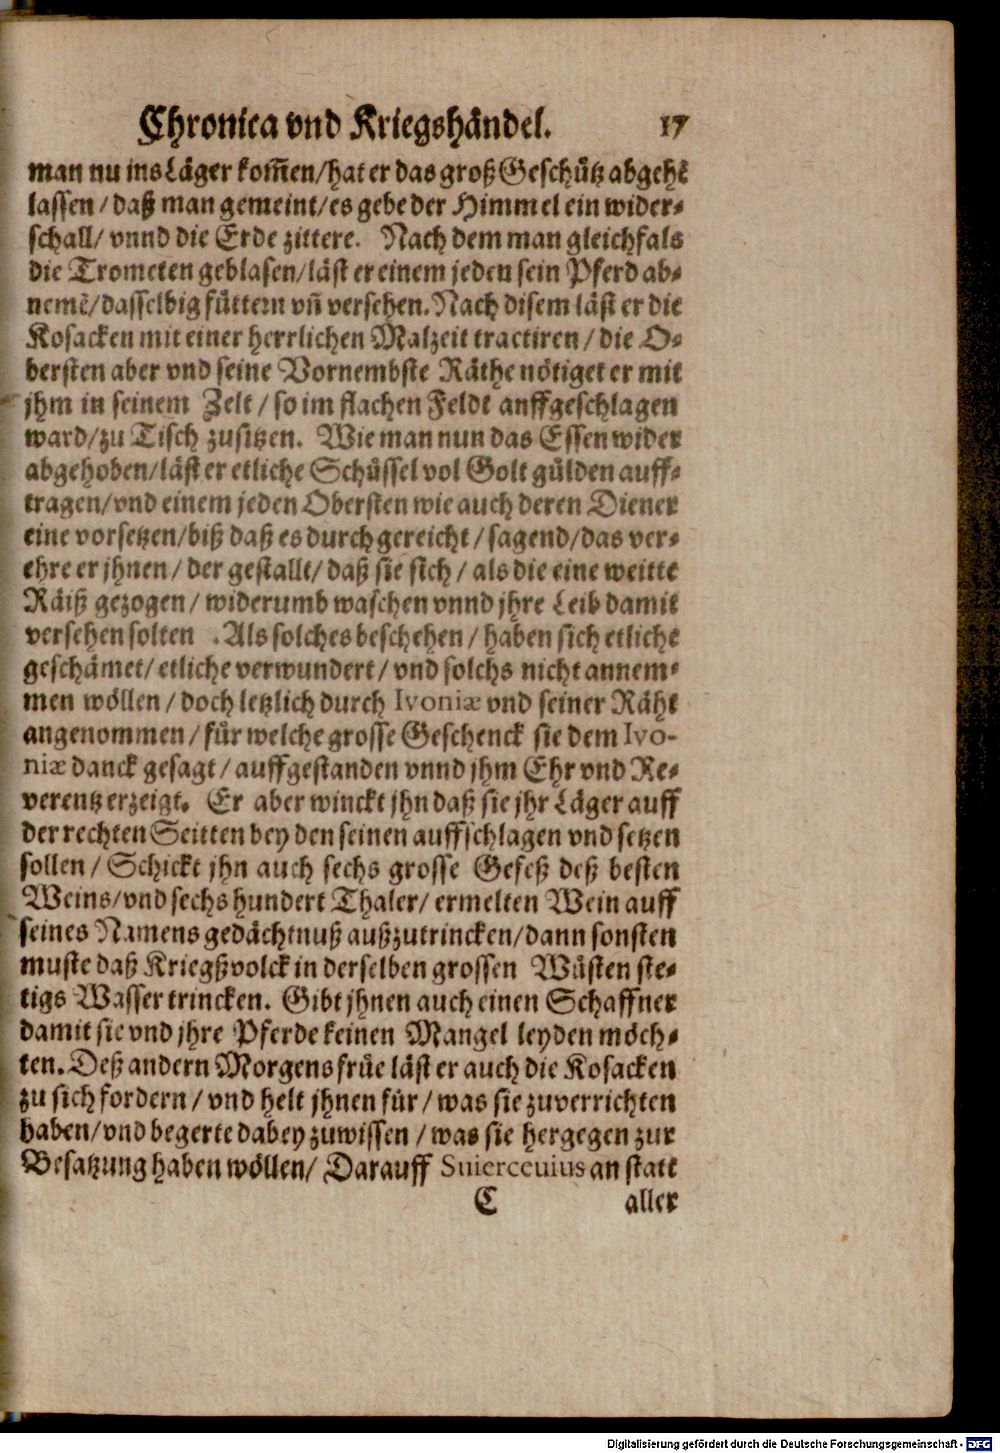 Chronica vnd Kriegshändel. 17
man nu ins Läger kom̃en/hat er das groß Geschütz abgehē
lassen / daß man gemeint/es gebe der Himmel ein wider-
schall/ vnnd die Erde zittere. Nach dem man gleichfals
die Trometen geblasen/läst er einem jeden sein Pferd ab-
nemē/dasselbig füttern vñ versehen. Nach disem läst er die
Kosacken mit einer herrlichen Malzeit tractiren / die O-
bersten aber vnd seine Vornembste Räthe nötiget er mit
jhm in seinem Zelt / so im flachen Feldt anffgeschlagen
ward/zu Tisch zusitzen. Wie man nun das Essen wider
abgehoben/läst er etliche Schüssel vol Golt gülden auff-
tragen/vnd einem jeden Obersten wie auch deren Diener
eine vorsetzen/biß daß es durch gereicht / sagend/das ver-
ehre er jhnen / der gestallt/ daß sie sich / als die eine weitte
Räiß gezogen / widerumb waschen vnnd jhre Leib damit
versehen solten . Als solches beschehen / haben sich etliche
geschämet/ etliche verwundert / vnd solchs nicht annem-
men wöllen / doch letzlich durch Ivoniæ vnd seiner Räht
angenommen / für welche grosse Geschenck sie dem Ivo-
niæ danck gesagt / auffgestanden vnnd jhm Ehr vnd Re-
verentz erzeigt. Er aber winckt jhn daß sie jhr Läger auff
der rechten Seitten bey den seinen auffschlagen vnd setzen
sollen / Schickt jhn auch sechs grosse Gefeß deß besten
Weins/vnd sechs hundert Thaler/ ermelten Wein auff
seines Namens gedächtnuß außzutrincken/dann sonsten
muste daß Kriegßvolck in derselben grossen Wüsten ste-
tigs Wasser trincken. Gibt jhnen auch einen Schaffner
damit sie vnd jhre Pferde keinen Mangel leyden möch-
ten. Deß andern Morgens früe läst er auch die Kosacken
zu sich fordern / vnd helt jhnen für / was sie zuverrichten
haben/vnd begerte dabey zuwissen / was sie hergegen zur
Besatzung haben wöllen/ Darauff Suierceuius an statt
C aller
Digitalisierung gefördert durch die Deutsche Forschungsgemeinschaft - DFG